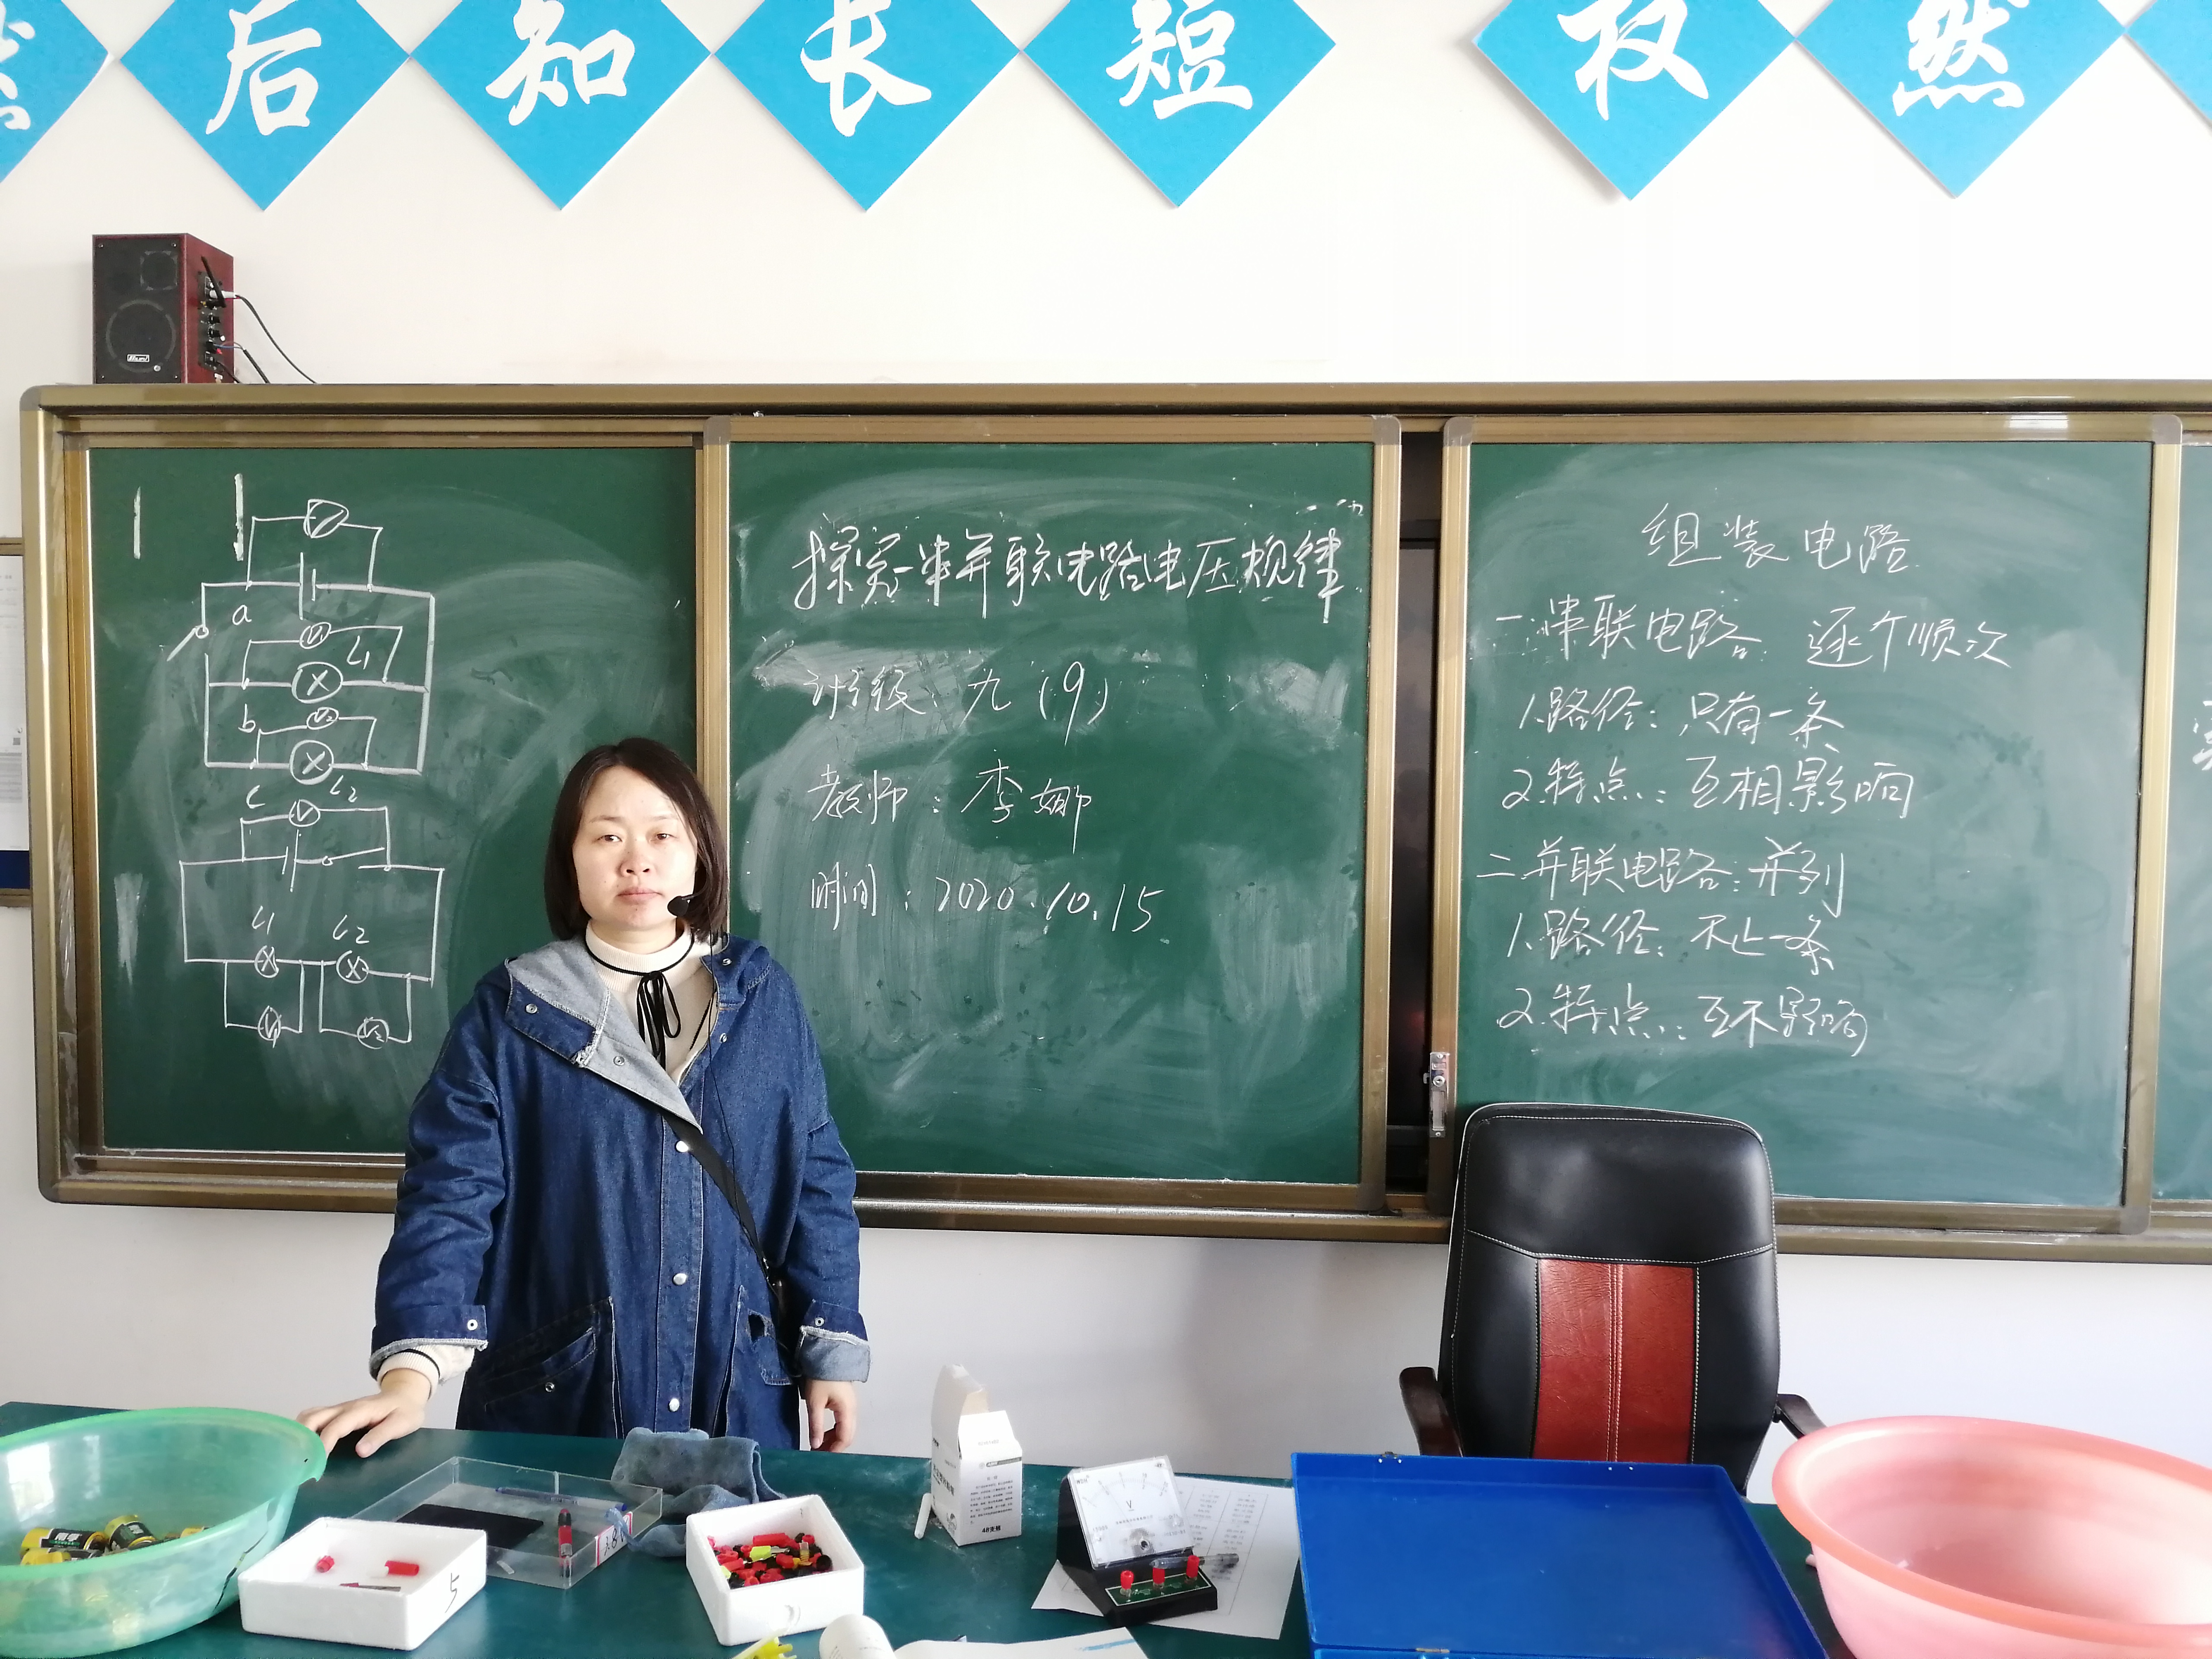 后知长短 权然
a
V1
L1
b
V2
c
L2
V
L1
L2
V1
V2
探究串并联电路电压规律
班级：九（9）
教师：李娜
时间：2020.10.15
组装电路
一.串联电路 逐个顺次
1.路径：只有一条
2.特点：互相影响
二.并联电路：并列
1.路径：不止一条
2.特点：互不影响
48支装
V
5